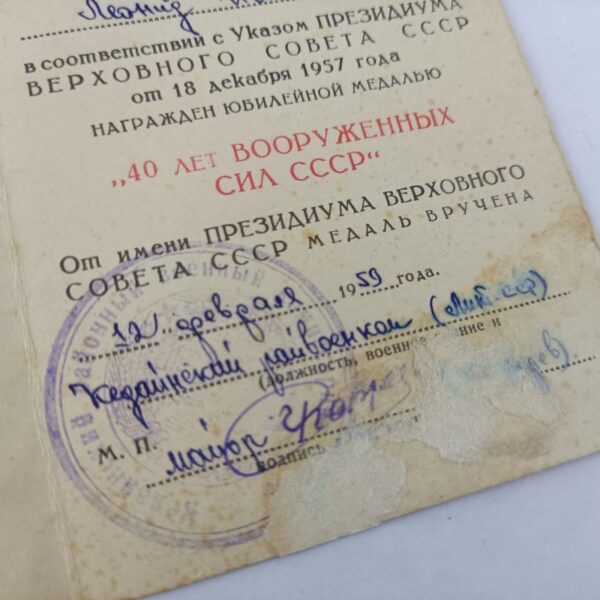 Леонид
в соответствии с Указом ПРЕЗИДИУМА
ВЕРХОВНОГО СОВЕТА СССР
от 18 декабря 1957 года
НАГРАЖДЕН ЮБИЛЕЙНОЙ МЕДАЛЬЮ
„40 ЛЕТ ВООРУЖЕННЫХ
СИЛ СССР“
От имени ПРЕЗИДИУМА ВЕРХОВНОГО
СОВЕТА СССР МЕДАЛЬ ВРУЧЕНА
12 февраля 1959 года.
Кедайнский райвоенком (Лит. ССР)
(должность, военное звание и
М. П. майор
подпись